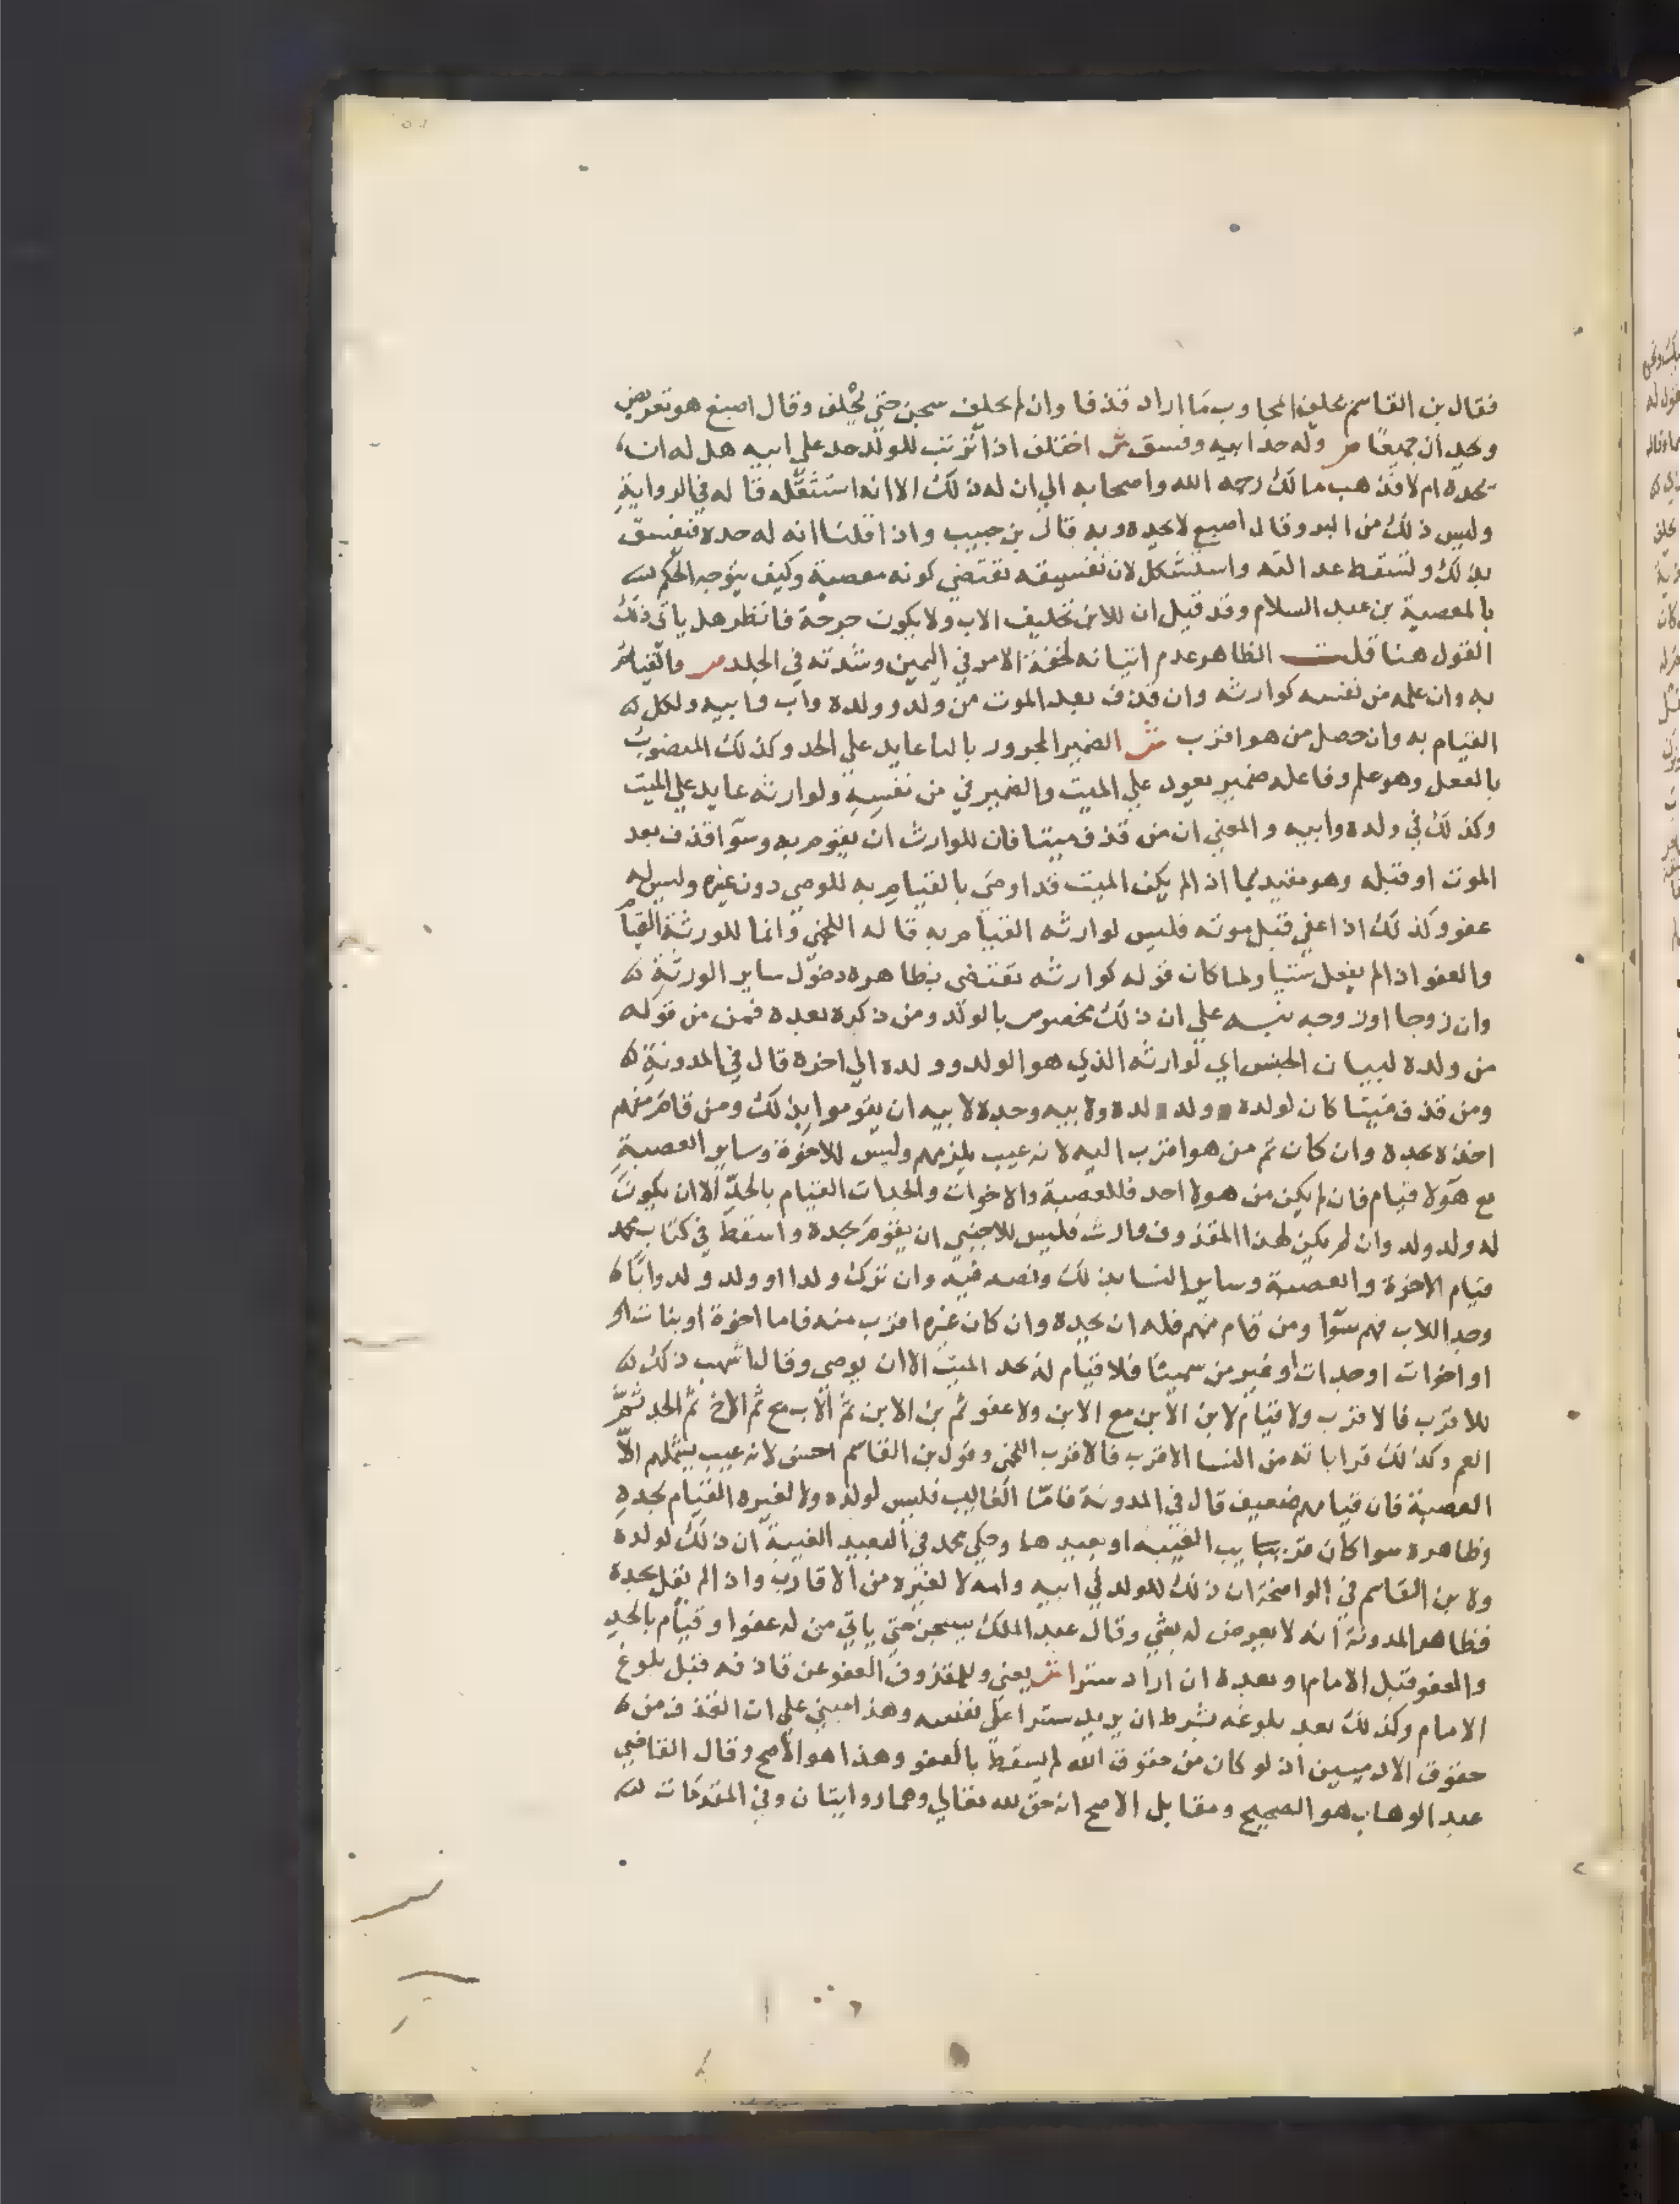 فقال بن القاسم يحلف المجاوب ما اراد قذفا وان لم يحلف سجن حتى يحلف وقال اصبغ هو تعريض
ويحدان جميعا ص وله حد ابيه وفسق ش اختلف اذا ترتب للولد حد على ابيه هل له ان
يحده ام لا فذهب مالك رحمه الله واصحابه الي ان له ذلك الا انه استثقله قاله في الرواية
وليس ذلك من البر وقال اصبغ لا يحده وبه قال بن حبيب واذا قلنا انه له حده فيفسق
بذلك وتسقط عدالته واستشكل لان تفسيقه تقتضي كونه معصية وكيف يتوجه الحكم
بالمعصية بن عبد السلام وقد قيل ان للابن تحليف الاب ولا يكون جرحة فانظر هل ياتي ذلك
القول هنا قلت الظاهر عدم اتيانه لخفة الامر في اليمين وشدته في الجلد ص والقيام
به وان علمه من نفسه كوارثه وان قذف بعد الموت من ولد وولده واب وابيه ولكل
القيام به وان حصل من هو اقرب ش الضمير المجرور بالبا عايد علي الحد وكذلك المنصوب
بالفعل وهو علم وفاعله ضمير يعود علي الميت والضمير في من نفسه ولوارثه عايد علي الميت
وكذلك في ولده وابيه والمعني ان من قذف ميتا فان للوارث ان يقوم به وسوا قذف بعد
الموت او قبله وهو مقيد بما اذا لم يكن الميت قد اوصي بالقيام به للوصي دون غيره وليس له
عفو وكذلك اذا عفي قبل موته فليس لوارثه القيام به قاله اللخمي وانما للورثة القيام
والعفو اذا لم يفعل شيا ولما كان قوله كوارثه تقتضي بظاهره دخول ساير الورثة
وان زوجا او زوجه نبه علي ان ذلك مخصوص بالولد ومن ذكره بعده فمن من قوله
من ولده لبيان الجنس اي لوارثه الذي هو الولد وولده الي اخره قال في المدونة
ومن قذف ميتا كان لولده وولد ولده ولابيه وجده لابيه ان يقوموا بذلك ومن قام منهم
اخذه بحده وان كان ثم من هو اقرب اليه لانه عيب يلزمهم وليس للاخوة وساير العصبة
مع هولا قيام فان لم يكن من هولا احد فللعصبة والاخوات والجدات القيام بالحد الا ان يكون
له ولد ولد وان لم يكن لهذا المقذوف وارث فليس للاجنبي ان يقوم بحده واسقط في كتاب محمد
قيام الاخوة والعصبة وساير النسا بذلك ونصه فيه وان ترك ولدا او ولد ولد وابا
وجدا للاب فهم سوا ومن قام منهم فله ان يحده وان كان غيره اقرب منه فاما اخوة او بنات او
او اخوات او جدات او غير من سمينا فلا قيام له بحد الميت الا ان يوصي وقال اشهب ذلك
للاقرب فالاقرب ولا قيام لابن الابن مع الابن ولا عفو ثم بن الابن ثم الاب مع ثم الاخ ثم الجد ثم
العم وكذلك قراباته من النسا الاقرب فالاقرب اللخمي وقول بن القاسم احسن لانه عيب يشملهم الا
العصبة فان قيامهم ضعيف قال في المدونة فاما الغايب فليس لولده ولا لغيره القيام بحده
وظاهره سوا كان قريب الغيبه او بعيدها وحكي محمد في البعيد الغيبة ان ذلك لولده
ولابن القاسم في الواضحة ان ذلك للولد في ابيه وامه لا لغيره من الاقارب واذا لم نقل بحده
فظاهر المدونة انه لا يعرض له بشي وقال عبد الملك يسجن حتي ياتي من له عفوا وقيام بالحد
والعفو قبل الامام او بعده ان اراد سترا ش يعني وللمقذوف العفو عن قاذفه قبل بلوغ
الامام وكذلك بعد بلوغه بشرط ان يريد سترا علي نفسه وهذا مبني علي ان القذف من
حقوق الادميين اذ لو كان من حقوق الله لم يسقط بالعفو وهذا هو الاصح وقال القاضي
عبد الوهاب هو الصحيح ومقابل الاصح انه حق لله تعالي وهما روايتان وفي المقدمات